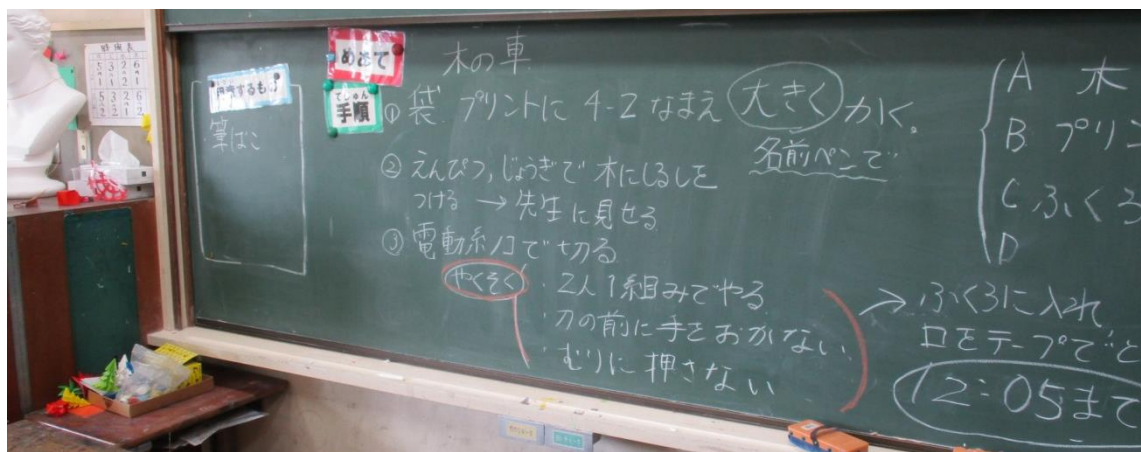 用意するもの
筆ばこ
めあて
木の車
てじゅん
手順
① 袋.プリントに 4-2 なまえ 大きく かく。
名前ペンで
② えんぴつ,じょうぎで 木にしるしを
つける → 先生に見せる
③ 電動糸ノコで切る
やくそく
・2人1組みでやる
・刀の前に手をおかない
・むりに押さない
A 木
B プリン
C ふくろ
D
→ ふくろに入れ
口をテープでと
12:05まで